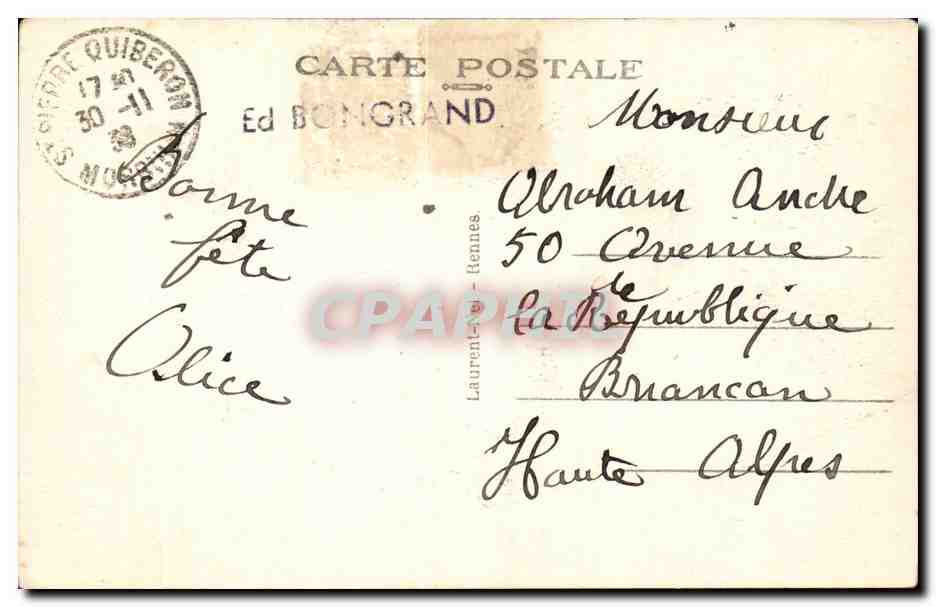 CARTE POSTALE
ST PIERRE QUIBERON
17
30 -11
38
Ed BONGRAND
Bonne
fête
Alice
Laurent-Nel - Rennes.
Monsieur
Abraham Andre
50 Avenue
de
la République
Briancon
Haute Alpes
CPAPHIL